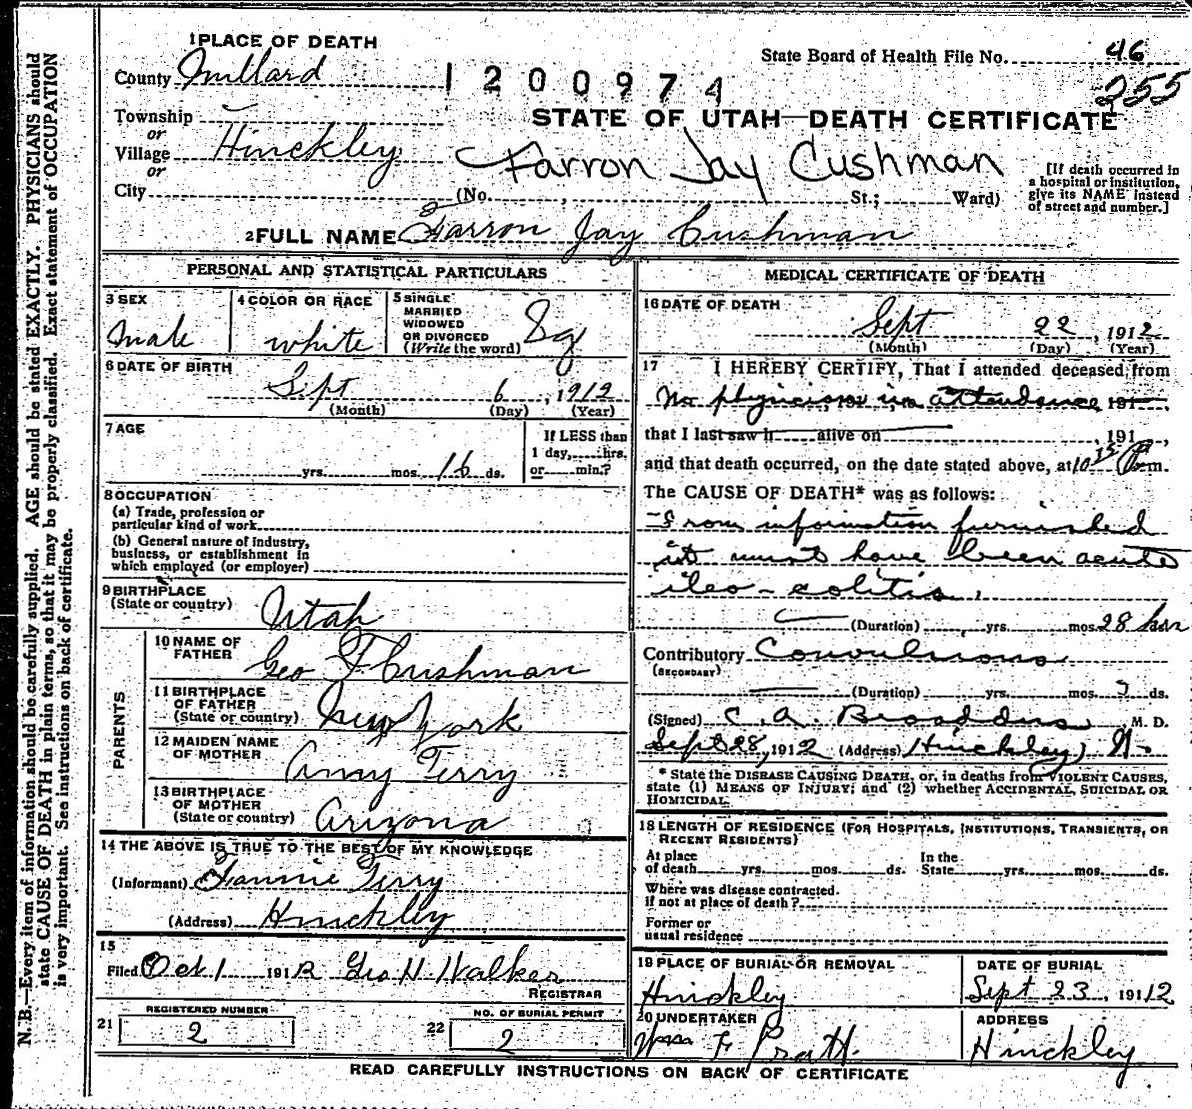 1 PLACE OF DEATH
County Millard
1200974
State Board of Health File No. 46
255
Township
or
Village Hinckley
or
City
STATE OF UTAH—DEATH CERTIFICATE
Farron Jay Cushman
(No. , St.; Ward)
[If death occurred in
a hospital or institution,
give its NAME instead
of street and number.]
2 FULL NAME Farron Jay Cushman
PERSONAL AND STATISTICAL PARTICULARS
3 SEX
male
4 COLOR OR RACE
white
5 SINGLE
MARRIED
WIDOWED
OR DIVORCED
(Write the word)
Sg
6 DATE OF BIRTH
Sept 6, 1912
(Month) (Day) (Year)
7 AGE
yrs. mos. 16 ds.
If LESS than
1 day, hrs.
or min.?
8 OCCUPATION
(a) Trade, profession or
particular kind of work
(b) General nature of industry,
business, or establishment in
which employed (or employer)
9 BIRTHPLACE
(State or country) Utah
PARENTS
10 NAME OF
FATHER Geo F Cushman
11 BIRTHPLACE
OF FATHER
(State or country) New York
12 MAIDEN NAME
OF MOTHER Anny Terry
13 BIRTHPLACE
OF MOTHER
(State or country) Arizona
14 THE ABOVE IS TRUE TO THE BEST OF MY KNOWLEDGE
(Informant) Fannie Terry
(Address) Hinckley
15
Filed Oct 1 1912 Geo H. Walker
REGISTRAR
21 REGISTERED NUMBER
2
22 NO. OF BURIAL PERMIT
2
MEDICAL CERTIFICATE OF DEATH
16 DATE OF DEATH
Sept 22, 1912
(Month) (Day) (Year)
17 I HEREBY CERTIFY, That I attended deceased from
No physician in attendance 191 ,
that I last saw h alive on , 191 ,
and that death occurred, on the date stated above, at 10 15 P m.
The CAUSE OF DEATH* was as follows:
From information furnished
it must have been acute
ileo-colitis.
(Duration) yrs. mos. 28 hrs
Contributory Convulsions
(SECONDARY)
(Duration) yrs. mos. ? ds.
(Signed) C. A. Broaddus, M. D.
Sept 28, 1912 (Address) Hinckley, U.
* State the DISEASE CAUSING DEATH, or, in deaths from VIOLENT CAUSES,
state (1) MEANS OF INJURY; and (2) whether ACCIDENTAL, SUICIDAL OR
HOMICIDAL.
18 LENGTH OF RESIDENCE (FOR HOSPITALS, INSTITUTIONS, TRANSIENTS, OR
RECENT RESIDENTS)
At place
of death yrs. mos. ds.
In the
State yrs. mos. ds.
Where was disease contracted.
if not at place of death?
Former or
usual residence
19 PLACE OF BURIAL OR REMOVAL
Hinckley
DATE OF BURIAL
Sept 23, 1912
20 UNDERTAKER
Wm F Pratt.
ADDRESS
Hinckley
READ CAREFULLY INSTRUCTIONS ON BACK OF CERTIFICATE
N. B.—Every item of information should be carefully supplied. AGE should be stated EXACTLY. PHYSICIANS should
state CAUSE OF DEATH in plain terms, so that it may be properly classified. Exact statement of OCCUPATION
is very important. See instructions on back of certificate.